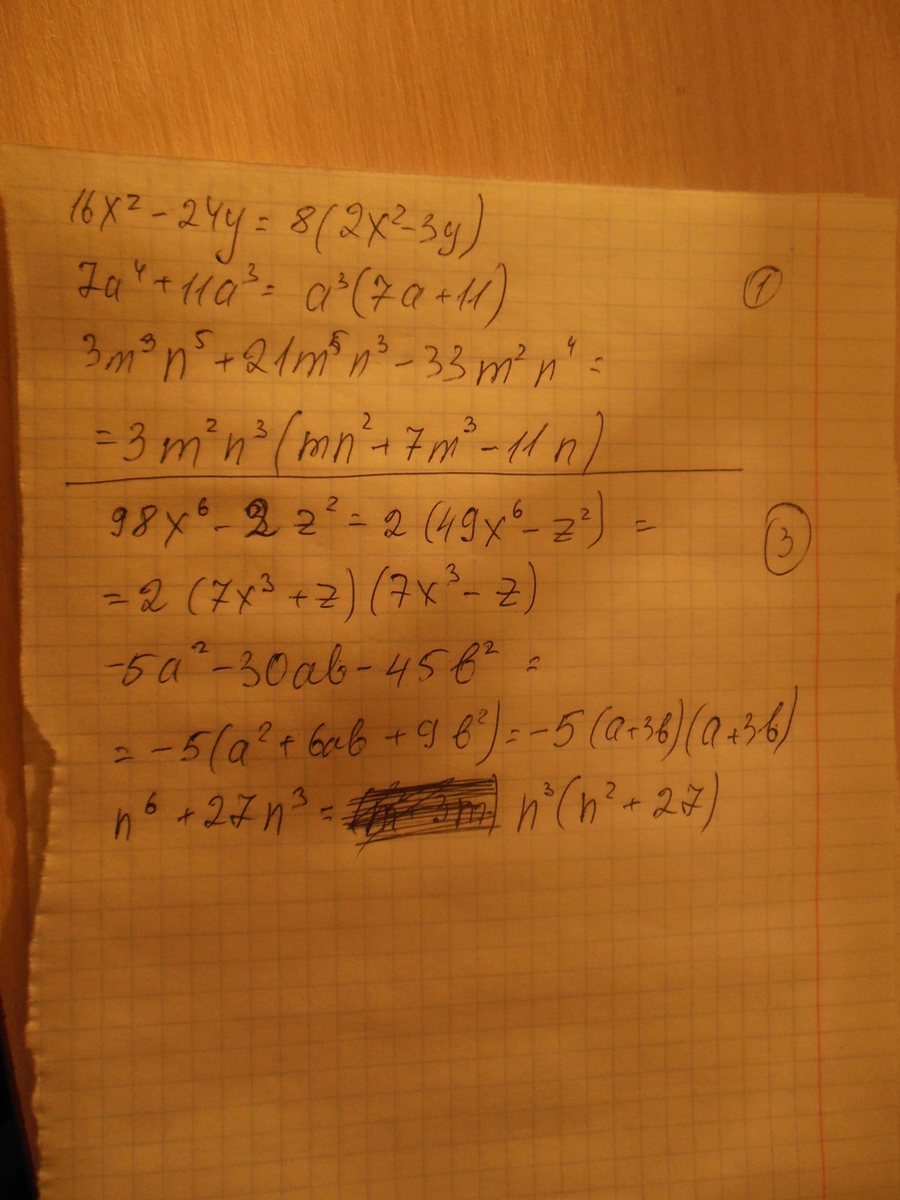 16x² - 24y = 8(2x² - 3y)
7a⁴ + 11a³ = a³(7a + 11)
①
3m³n⁵ + 21m⁵n³ - 33m²n⁴ =
= 3m²n³(mn² + 7m³ - 11n)
98x⁶ - 2z² = 2(49x⁶ - z²) =
③
= 2(7x³ + z)(7x³ - z)
-5a² - 30ab - 45b² =
= -5(a² + 6ab + 9b²) = -5(a + 3b)(a + 3b)
n⁶ + 27n³ = n³(n² + 27)